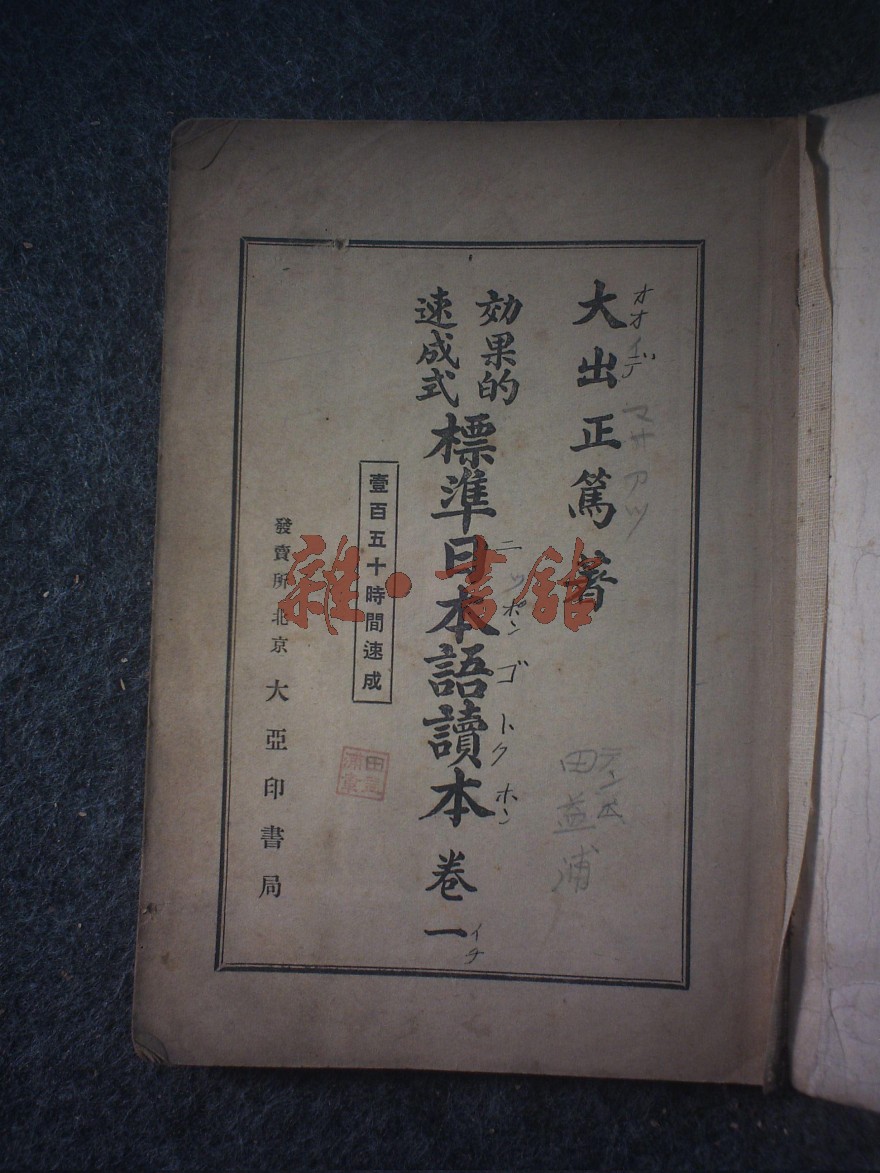 大出正篤著
オオイデ マサアツ
効果的
速成式
標準日本語讀本 卷一
ニッポンゴ トクホン イチ
壹百五十時間速成
發賣所 北京 大亞印書局
田益浦
雜·書館